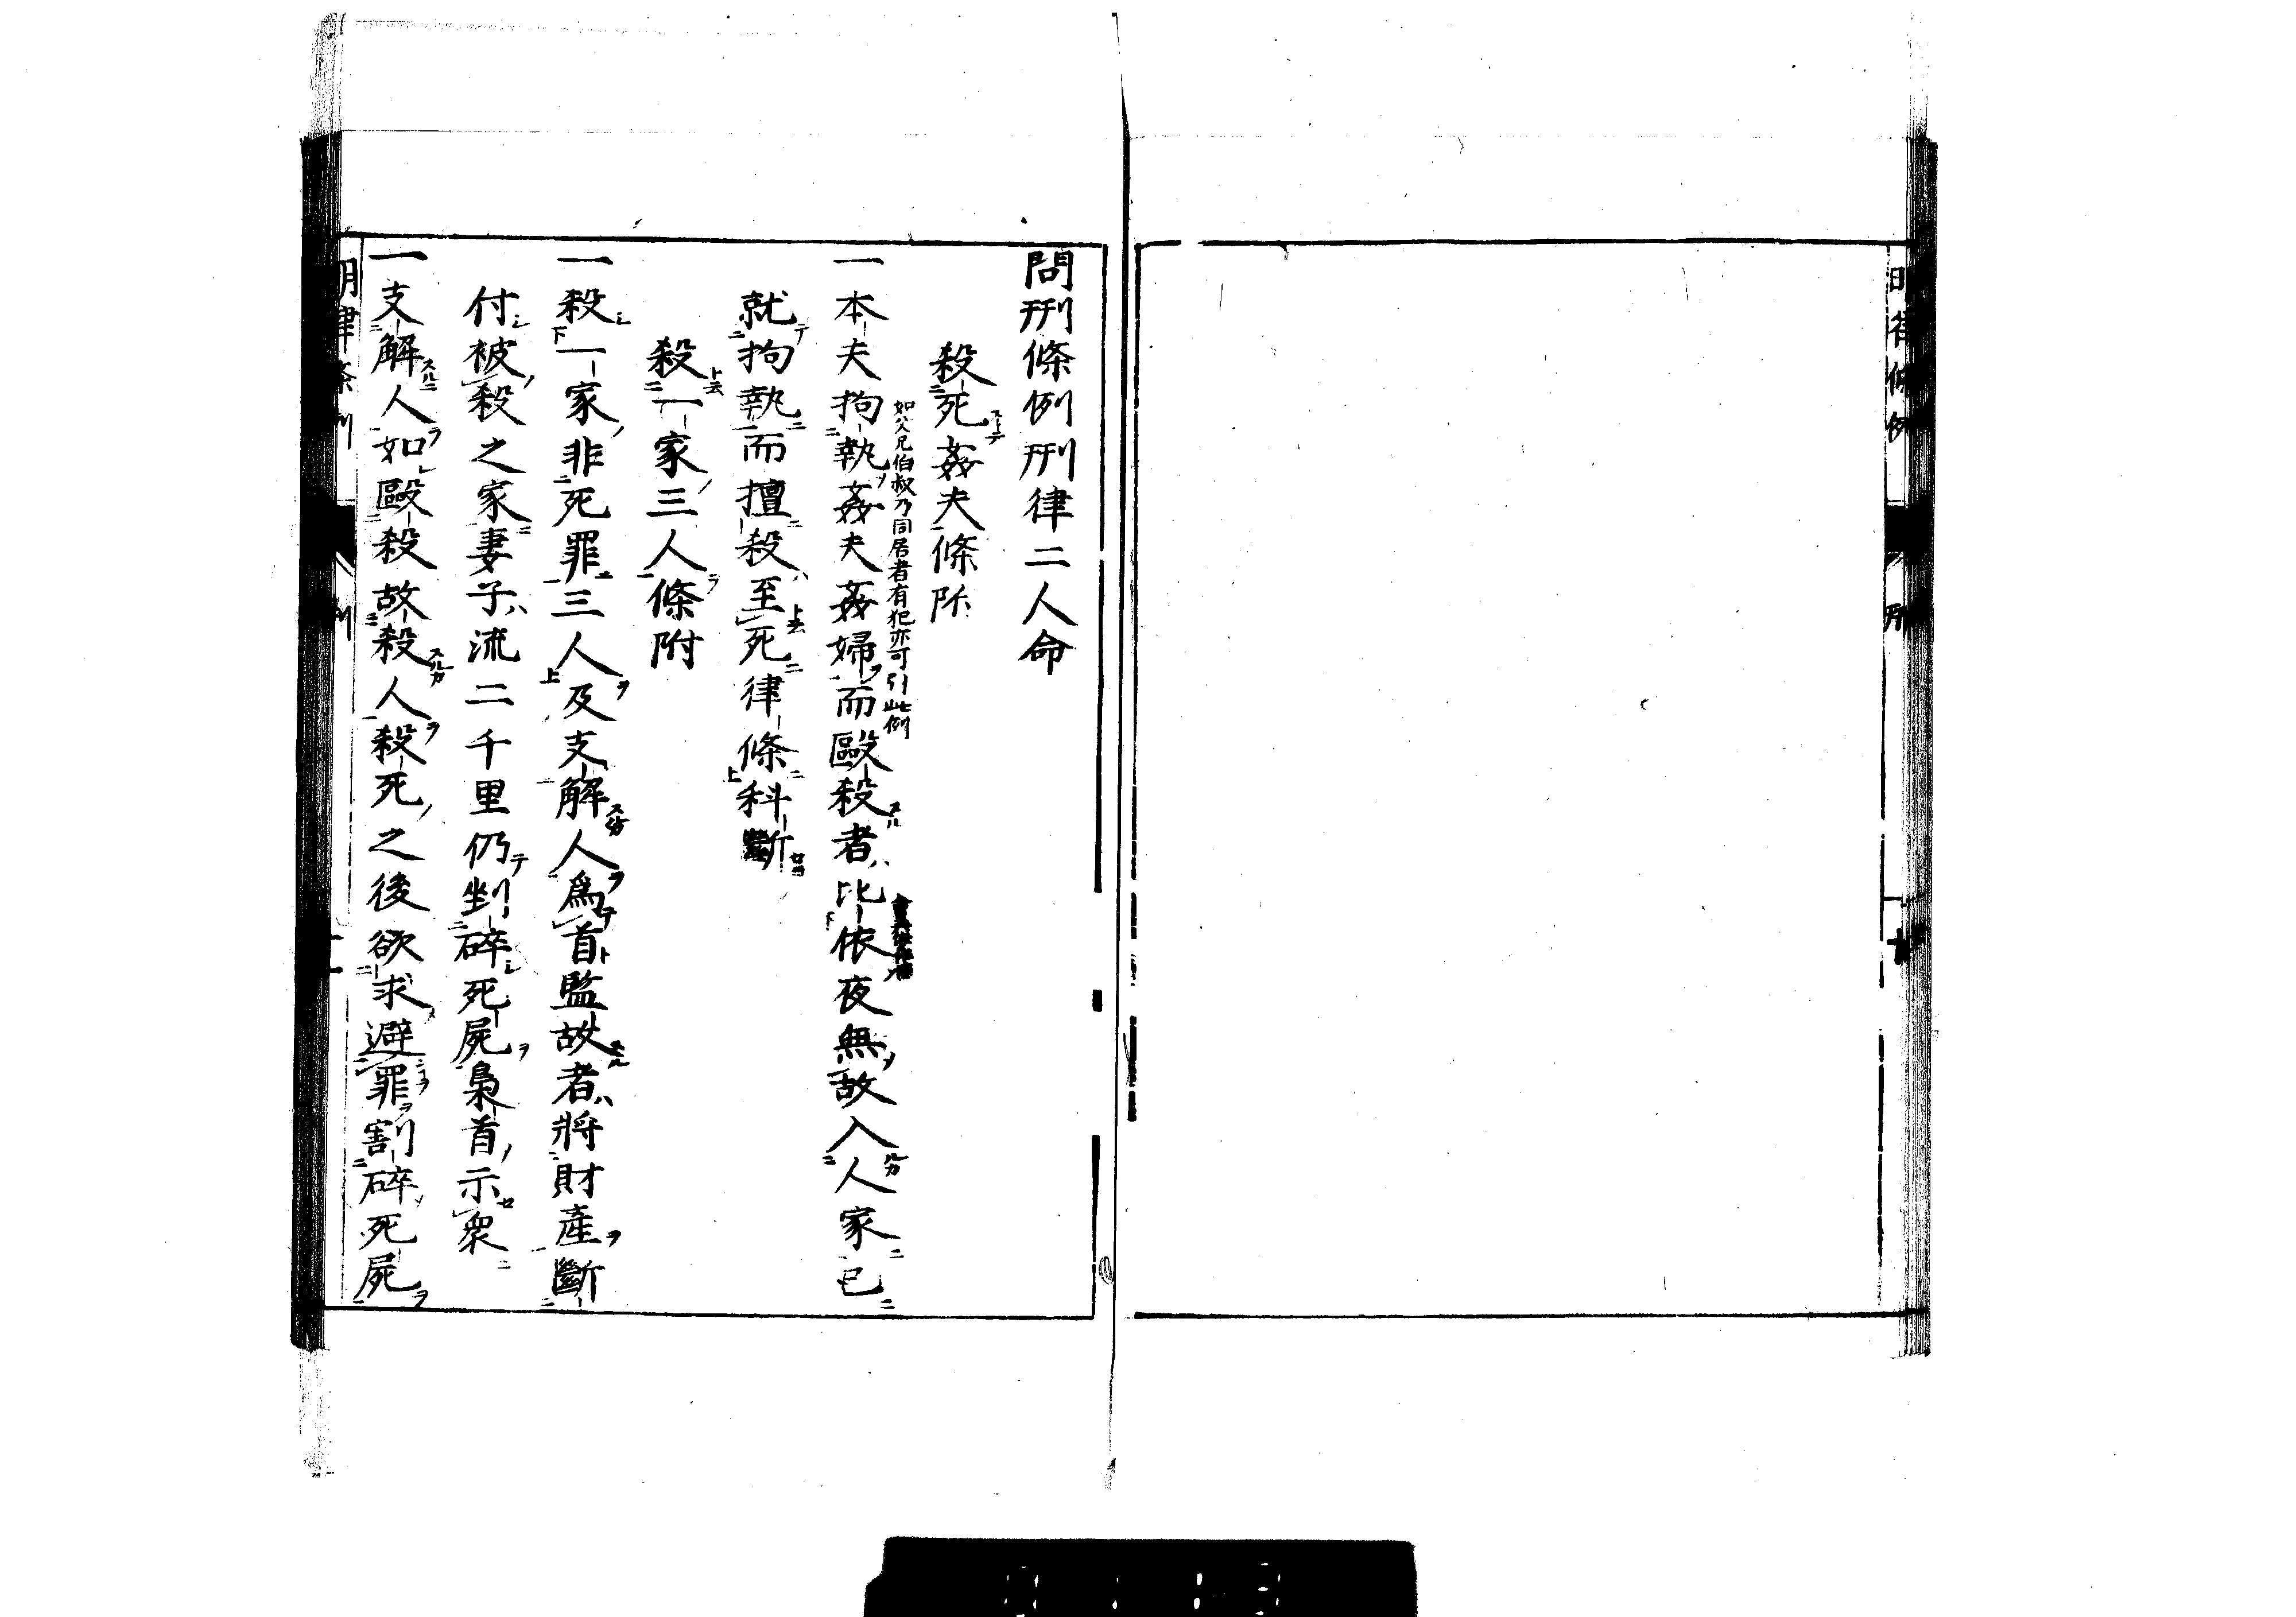 問刑條例刑律二人命
殺死姦夫條附
如父兄伯叔乃同居者有犯亦可引此例
一本夫拘執姦夫姦婦而毆殺者比依夜無故入人家已
就拘執而擅殺至死律條科斷
殺一家三人條附
一殺一家非死罪三人及支解人爲首監故者將財產斷
付被殺之家妻子流二千里仍剉碎死屍梟首示衆
一支解人如毆殺故殺人殺死之後欲求避罪割碎死屍